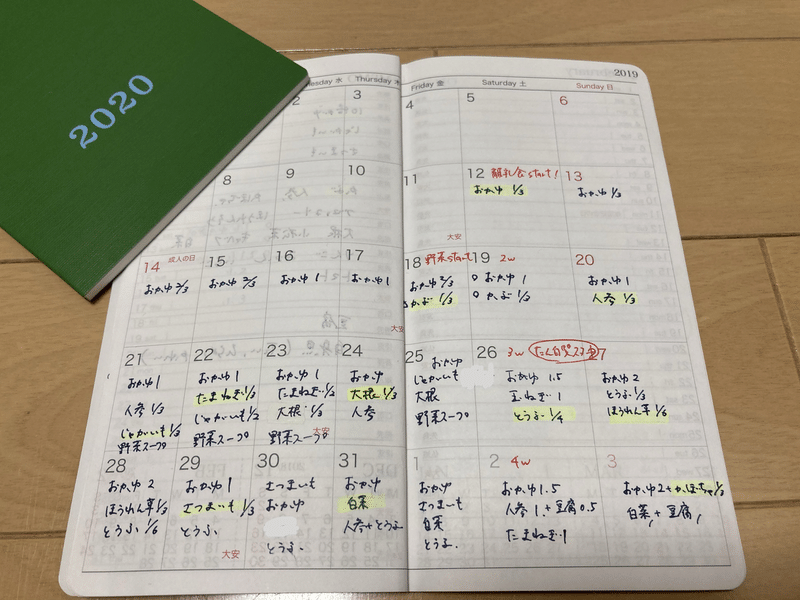 2020
2019
Thursday 木
Friday 金
Saturday 土
Sunday 日
2
3
4
5
6
8
9
10
11
大安
12 離乳食start!
おかゆ 1/3
13
おかゆ 1/3
14 成人の日
おかゆ 2/3
15
おかゆ 2/3
16
おかゆ 1
17
おかゆ 1
大安
18 野菜start
おかゆ 2/3
かぶ 1/3
19 2w
おかゆ 1
かぶ 1/3
20
おかゆ 1
人参 1/3
21
おかゆ 1
人参 1/3
じゃがいも 1/3
野菜スープ
22
おかゆ 1
たまねぎ 1/3
じゃがいも 1/2
野菜スープ
23
おかゆ 1
たまねぎ 1/2
大根 1/3
野菜スープ
大安
24
おかゆ
大根 1/3
人参
25
おかゆ
じゃがいも
大根
野菜スープ
26 3w
おかゆ 1.5
玉ねぎ 1
とうふ 1/4
27
おかゆ 2
とうふ 1/3
ほうれん草 1/6
28
おかゆ 2
ほうれん草 1/3
とうふ 1/6
29
おかゆ 1
さつまいも 1/3
とうふ
大安
30
さつまいも
おかゆ
とうふ
31
おかゆ
白菜
人参+とうふ
1
おかゆ
さつまいも
白菜
とうふ
2 4w
おかゆ 1.5
人参 1+豆腐 0.5
たまねぎ 1
3
おかゆ 2+かぼちゃ 1/3
白菜, +豆腐,